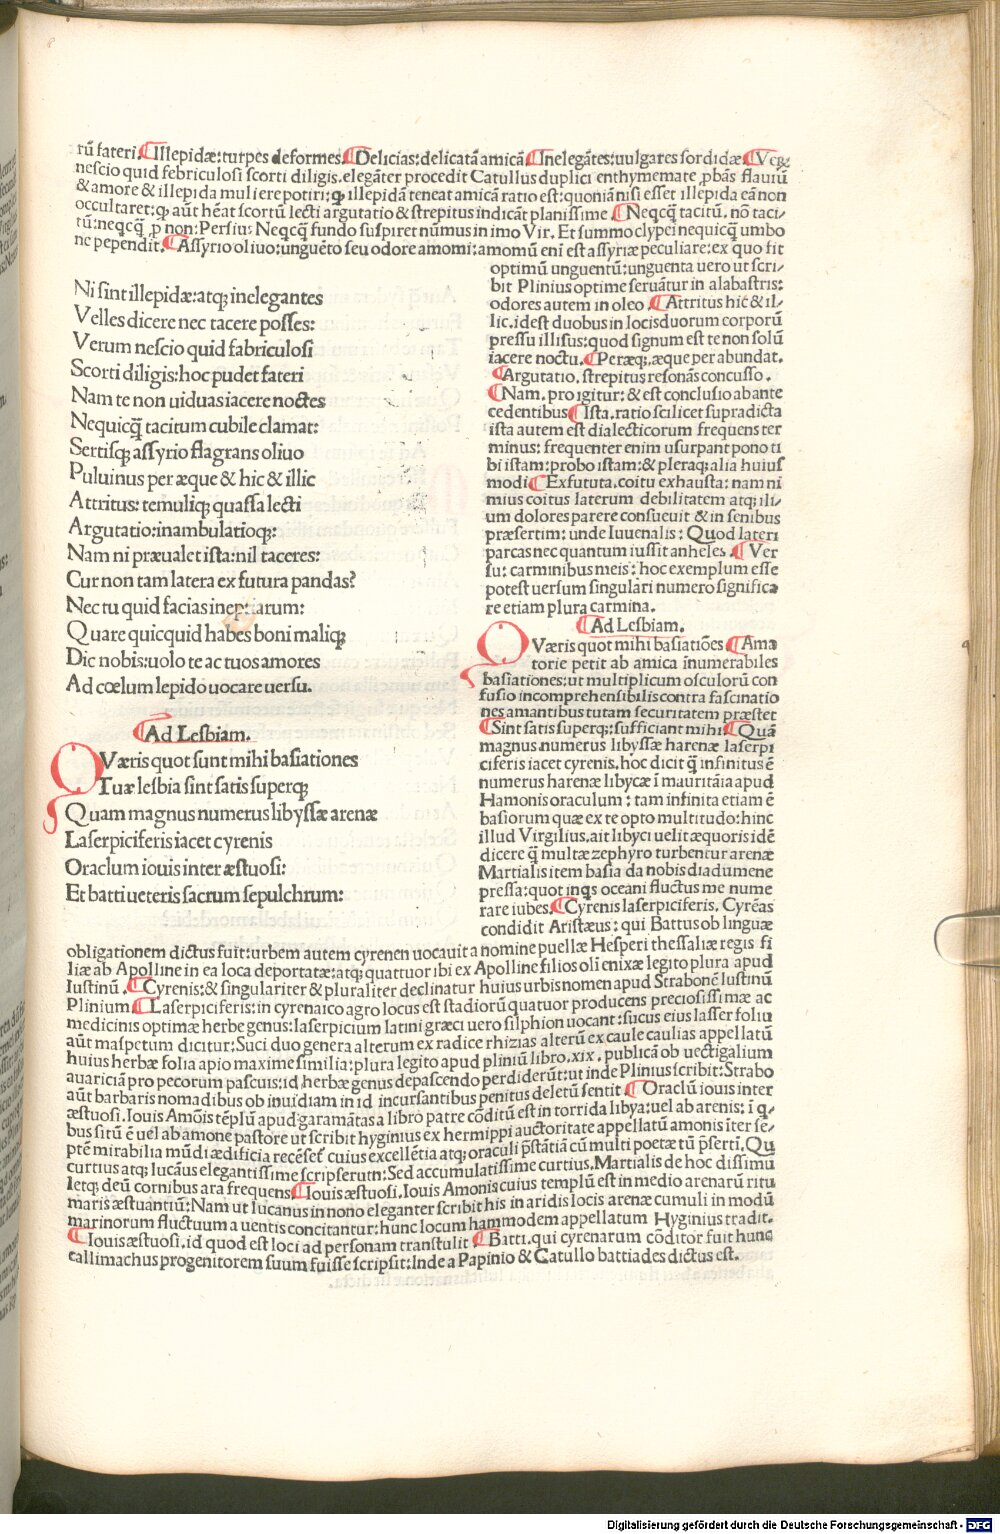 rū fateri. ¶Illepidæ: turpes deformes. ¶Delicias: delicatā amicā ¶Inelegātes: uulgares sordidæ ¶Veꝝ
nescio quid febriculosi scorti diligis. elegāter procedit Catullus duplici enthymemate ꝓbās flauiū
& amore & illepida muliere potiri: ꝙ illepidā teneat amicā ratio est: quoniā nisi esset illepida eā non
occultaret: ꝙ aūt hēat scortū lecti argutatio & strepitus indicāt planissime ¶Neqcq̄ tacitū. nō taci/
tū: neqcq̄ ꝓ non: Persius Neqcq̄ fundo suspiret nūmus in imo Vir. Et summo clypei nequicq̄ umbo
ne pependit. ¶Assyrio oliuo: unguēto seu odore amomi: amomū eni est assyriæ peculiare: ex quo fit
Ni sint illepidæ: atq; inelegantes
Velles dicere nec tacere posses:
Verum nescio quid fabriculosi
Scorti diligis: hoc pudet fateri
Nam te non uiduas iacere noctes
Nequicq̄ tacitum cubile clamat:
Sertisq; assyrio flagrans oliuo
Puluinus per æque & hic & illic
Attritus: temuliq; quassa lecti
Argutatio: inambulatioq;:
Nam ni præualet ista: nil taceres:
Cur non tam latera exfutura pandas?
Nec tu quid facias ineptiarum:
Quare quicquid habes boni maliq;
Dic nobis: uolo te ac tuos amores
Ad cœlum lepido uocare uersu.
¶Ad Lesbiam.
QVæris quot sunt mihi basiationes
Tuæ lesbia sint satis superq;
Quam magnus numerus libyssæ arenæ
Laserpiciferis iacet cyrenis
Oraclum iouis inter æstuosi:
Et batti ueteris sacrum sepulchrum:
optimū unguentū: unguenta uero ut scri/
bit Plinius optime seruātur in alabastris:
odores autem in oleo. ¶Attritus hic & il/
lic. idest duobus in locis duorum corporū
pressu illisus: quod signum est te non solū
iacere noctu. ¶Peræq;. æque per abundat.
¶Argutatio. strepitus resonās concusso.
¶Nam. pro igitur: & est conclusio abante
cedentibus ¶Ista. ratio scilicet supradicta
ista autem est dialecticorum frequens ter
minus: frequenter enim usurpant pono ti
bi istam: probo istam: & pleraq; alia huius
modi ¶Exfututa. coitu exhausta: nam ni
mius coitus laterum debilitatem atq; ili/
um dolores parere consueuit & in senibus
præsertim: unde Iuuenalis: Quod lateri
parcas nec quantum iussit anheles. ¶Ver
su: carminibus meis: hoc exemplum esse
potest uersum singulari numero significa
re etiam plura carmina.
¶Ad Lesbiam.
QVæris quot mihi basiatiōes ¶Ama
torie petit ab amica īnumerabiles
basiationes: ut multiplicum osculorū con
fusio incomprehensibilis contra fascinatio
nes amantibus tutam securitatem præstet
¶Sint satis superq;: sufficiant mihi ¶Quā
magnus numerus libyssæ harenæ laserpi
ciferis iacet cyrenis. hoc dicit q̄ infinitus ē
numerus harenæ libycæ ī mauritāia apud
Hamonis oraculum: tam infinita etiam ē
basiorum quæ ex te opto multitudo: hinc
illud Virgilius. ait libyci uelit æquoris idē
dicere q̄ multæ zephyro turbentur arenæ
Martialis item basia da nobis diadumene
pressa: quot inqs oceani fluctus me nume
rare iubes. ¶Cyrenis laserpiciferis. Cyrēas
condidit Aristæus: qui Battus ob linguæ
obligationem dictus fuit: urbem autem cyrenen uocauit a nomine puellæ Hesperi thessaliæ regis fi
liæ ab Apolline in ea loca deportatæ: atq; quattuor ibi ex Apolline filios oli enixæ legito plura apud
Iustinū. ¶Cyrenis: & singulariter & pluraliter declinatur huius urbis nomen apud Strabonē Iustinū
Plinium ¶Laserpiciferis: in cyrenaico agro locus est stadiorū quatuor producens preciosissimæ ac
medicinis optimæ herbe genus: laserpicium latini græci uero silphion uocant: sucus eius lasser foliū
aūt maspetum dicitur: Suci duo genera alterum ex radice rhizias alterū ex caule caulias appellatū
huius herbæ folia apio maxime similia: plura legito apud pliniū libro. xix. publicā ob uectigalium
auariciā pro pecorum pascuis: id herbæ genus depascendo perdiderūt: ut inde Plinius scribit: Strabo
aūt barbaris nomadibus ob inuidiam in id incursantibus penitus deletū sentit ¶Oraclū iouis inter
æstuosi. Iouis Amōis tēplū apud garamātas a libro patre cōditū est in torrida libya: uel ab arenis: ī q̇/
bus sitū ē uel ab amone pastore ut scribit hyginius ex hermippi auctoritate appellatū amonis īter se/
ptē mirabilia mūdi ædificia recēset̄ cuius excellētia atq; oraculi p̄stātiā cū multi poetæ tū p̄serti. Qu
curtius atq; lucāus elegantissime scripserutn: Sed accumulatissime curtius. Martialis de hoc dissimū
letq; deū cornibus ara frequens ¶Iouis æstuosi. Iouis Amonis cuius templū est in medio arenarū ritu
maris æstuantiū: Nam ut lucanus in nono eleganter scribit his in aridis locis arenæ cumuli in modū
marinorum fluctuum a uentis concitantur: hunc locum hammodem appellatum Hyginius tradit.
¶Iouis æstuosi. id quod est loci ad personam transtulit ¶Batti. qui cyrenarum cōditor fuit hunc
callimachus progenitorem suum fuisse scripsit: Inde a Papinio & Catullo battiades dictus est.
Digitalisierung gefördert durch die Deutsche Forschungsgemeinschaft - DFG